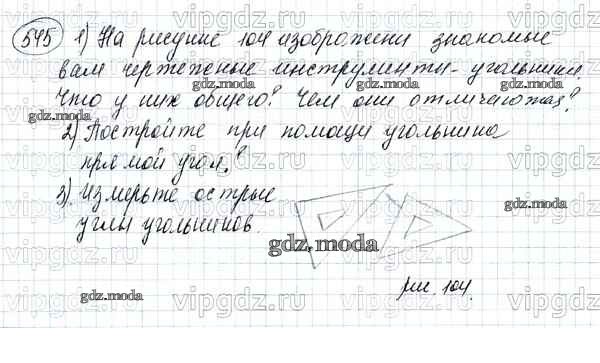 545 1) На рисунке 104 изображены знакомые
вам чертежные инструменты - угольники.
Что у них общего? Чем они отличаются?
2) Постройте при помощи угольника
прямой угол.
3) Измерьте острые
углы угольников.
рис. 104.
gdz.moda
vipgdz.ru